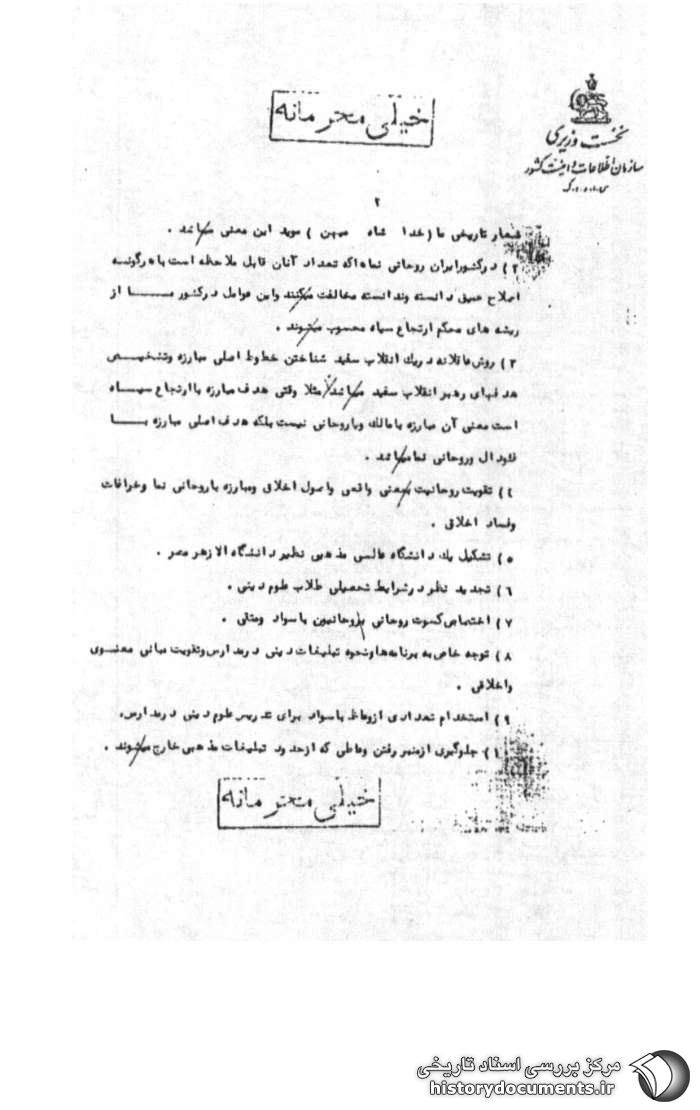 خیلی محرمانه
نخست وزیری
سازمان اطلاعات و امنیت کشور
س.ا.و.ا.ک
۲
شعار تاریخی ما (خدا شاه میهن) موید این معنی میباشد.
۲) در کشور ایران روحانی نماها که تعداد آنان قابل ملاحظه است با هرگونه
اصلاح عمیق دانسته و ندانسته مخالفت میکنند و این عوامل در کشور ما از
ریشه های محکم ارتجاع سیاه محسوب میشوند.
۳) روش عاقلانه در یک انقلاب سفید شناختن خطوط اصلی مبارزه و تشخیص
هدفهای رهبر انقلاب سفید میباشد مثلا وقتی هدف مبارزه با ارتجاع سیاه
است معنی آن مبارزه با مالک و یا روحانی نیست بلکه هدف اصلی مبارزه با
فئودال و روحانی نما میباشد.
۴) تقویت روحانیت بمعنی واقعی و اصول اخلاق و مبارزه با روحانی نما و خرافات
و فساد اخلاق.
۵) تشکیل یک دانشگاه عالی مذهبی نظیر دانشگاه الازهر مصر.
۶) تجدید نظر در شرایط تحصیلی طلاب علوم دینی.
۷) اختصاص کسوت روحانی بروحانیون با سواد و متقی.
۸) توجه خاص به برنامه‌ها و نحوه تبلیغات دینی در مدارس و تقویت مبانی معنوی
و اخلاقی.
۹) استخدام تعدادی از وعاظ با سواد برای تدریس علوم دینی در مدارس.
۱) جلوگیری از منبر رفتن وعاظی که از حدود تبلیغات مذهبی خارج میشوند.
خیلی محرمانه
مرکز بررسی اسناد تاریخی
historydocuments.ir